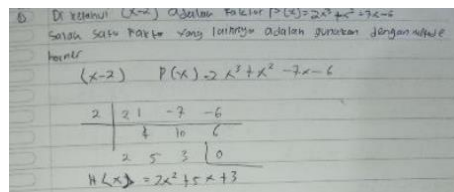 Di ketahui (x-2) adalah faktor P(x)=2x³+x²-7x-6
Salah satu faktor yang lainnya adalah gunakan dengan metode
horner
(x-2) P(x)=2x³+x²-7x-6
2 | 2 1 -7 -6
4 10 6
2 5 3 | 0
H(x) = 2x²+5x+3